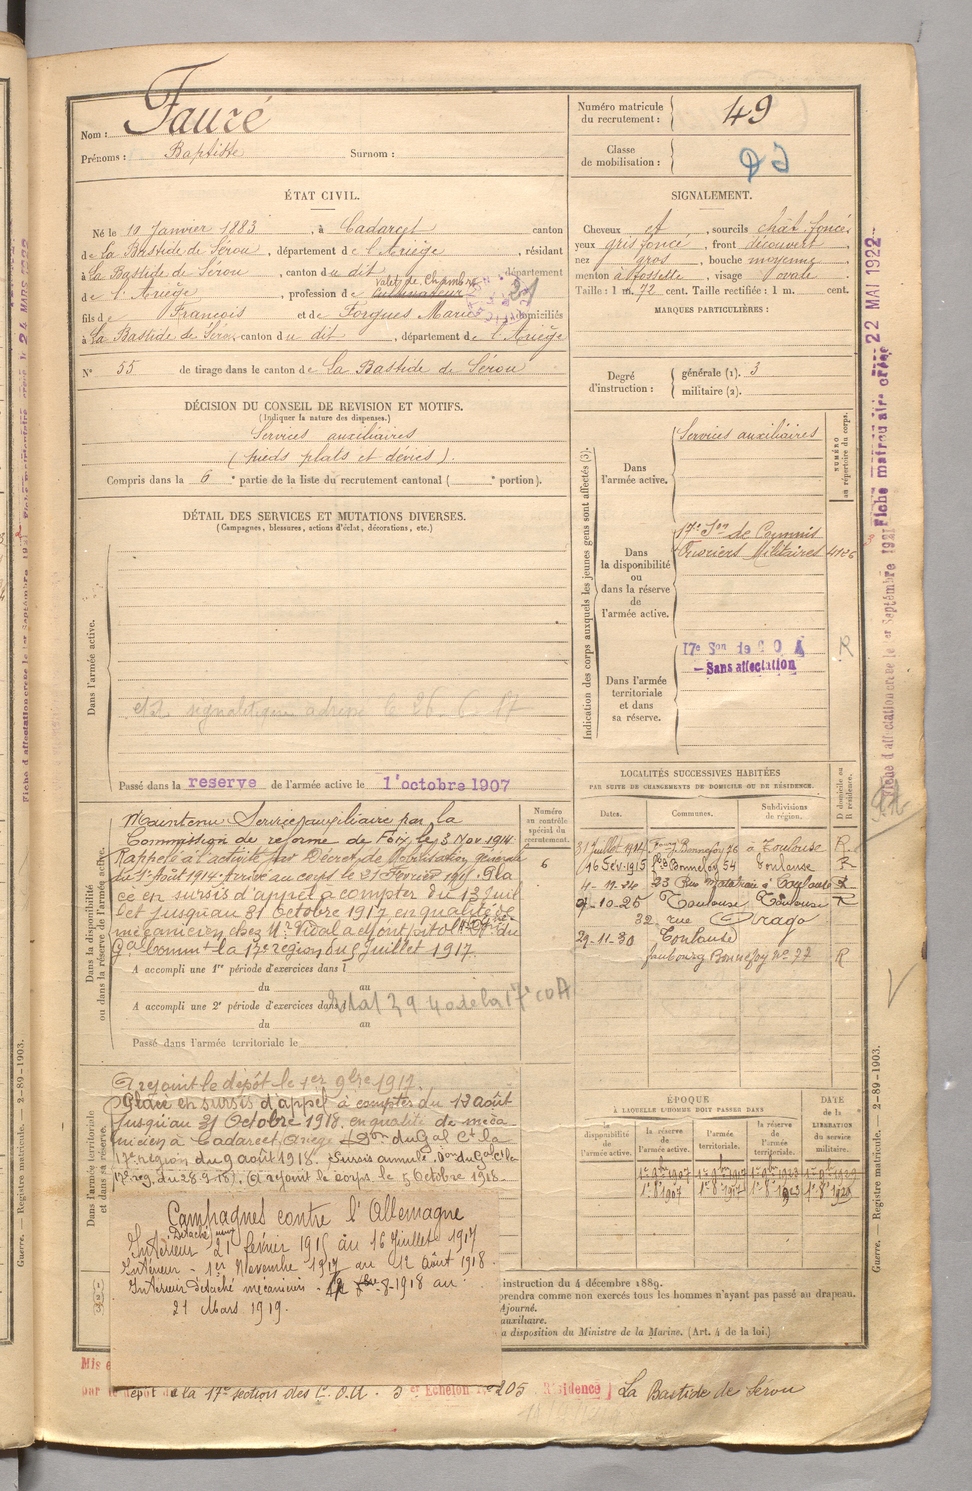 Nom : Fauré
Prénoms : Baptiste Surnom :
Numéro matricule du recrutement : 49
Classe de mobilisation :
ÉTAT CIVIL.
Né le 10 Janvier 1883, à Cadarcet canton
de La Bastide de Sérou, département de l'Ariège, résidant
à La Bastide de Sérou, canton du dit, département
valet de Chambre
de l'Ariège, profession de cultivateur 21
fils de François et de Sorgues Marie domiciliés
à La Bastide de Sérou, canton du dit, département de l'Ariège
N° 55 de tirage dans le canton de La Bastide de Sérou
SIGNALEMENT.
Cheveux et, sourcils chât foncés
yeux gris foncé, front découvert,
nez gros, bouche moyenne,
menton à fossette, visage ovale.
Taille : 1 m. 72 cent. Taille rectifiée : 1 m. cent.
MARQUES PARTICULIÈRES :
Degré d'instruction : générale (1). 3
militaire (2).
DÉCISION DU CONSEIL DE REVISION ET MOTIFS.
(Indiquer la nature des dispenses.)
Services auxiliaires
(pieds plats et déviés).
Compris dans la 6e partie de la liste du recrutement cantonal ( e portion).
DÉTAIL DES SERVICES ET MUTATIONS DIVERSES.
(Campagnes, blessures, actions d'éclat, décorations, etc.)
Dans l'armée active.
Passé dans la reserve de l'armée active le 1er octobre 1907
Indication des corps auxquels les jeunes gens sont affectés (3).
NUMÉRO au répertoire du corps.
Dans l'armée active.
Services auxiliaires
Dans la disponibilité ou dans la réserve de l'armée active.
17e Son de Commis
Ouvriers Militaires 4126
Dans l'armée territoriale et dans sa réserve.
17e Son de C O A
Sans affectation
R
Dans la disponibilité ou dans la réserve de l'armée active.
Maintenu Service auxiliaire par la
Commission de réforme de Foix le 3 Nov 1914
Rappelé à l'activité par Décret de Mobilisation Générale
du 1er Août 1914. Arrivé au corps le 21 Février 1915. Pla
cé en sursis d'appel à compter du 17 Juil
let jusqu'au 31 Octobre 1917 en qualité de
mécanicien chez Mr Vidal
Gal Commt la 17e région du 9 Juillet 1917.
Numéro au contrôle spécial du recrutement.
6
A accompli une 1re période d'exercices dans l
du au
A accompli une 2e période d'exercices dans l
du au
Passé dans l'armée territoriale le
Dans l'armée territoriale et dans sa réserve.
A rejoint le dépôt le 1er 9bre 1917.
Placé en sursis d'appel à compter du 13 août
jusqu'au 31 Octobre 1918. en qualité de méca
nicien à Cadarcet, Ariège. Don du Gal Ct la
17e région du 9 août 1918. Sursis annulé. Don du Gal Ct la
17e rég. du 28-9-18). A rejoint le corps. le 5 Octobre 1918.
Campagnes contre l'Allemagne
Intérieur 21 février 1915 au 16 Juillet 1917
Intérieur - 1er Novembre 1917 au 12 Août 1918.
Intérieur détaché mécanicien -8-1918 au :
21 Mars 1919.
LOCALITÉS SUCCESSIVES HABITÉES
PAR SUITE DE CHANGEMENTS DE DOMICILE OU DE RÉSIDENCE.
Dates. Communes. Subdivisions de région. D domicile ou R résidence.
31 Juillet 1914 Faug Bonnefoy 76 à Toulouse R
16 Fév. 1915 Fbg Bonnefoy 54 Toulouse R
4-12-24 23 Rue Matabiau à Toulouse R
9-10-26 Toulouse Toulouse R
32 rue Arago
29-11-30 Toulouse
faubourg Bonnefoy N° 77 R
ÉPOQUE
À LAQUELLE L'HOMME DOIT PASSER DANS
la disponibilité de l'armée active. la réserve de l'armée active. l'armée territoriale. la réserve de l'armée territoriale.
DATE de la LIBÉRATION du service militaire.
1er 8bre 1907 1er 8bre 1917 1er 8bre 1923 1er 8bre 1929
instruction du 4 décembre 1889.
prendra comme non exercés tous les hommes n'ayant pas passé au drapeau.
Ajourné.
auxiliaire.
a disposition du Ministre de la Marine. (Art. 4 de la loi.)
Dépôt de la 17e section des C.O.A. 3 er Echelon 205 Résidence La Bastide de Sérou
Guerre. — Registre matricule. — 2-89-1903.
Fiche d'affectation créée le 1er Septembre 1921
Fiche matricule créée 22 MAI 1922